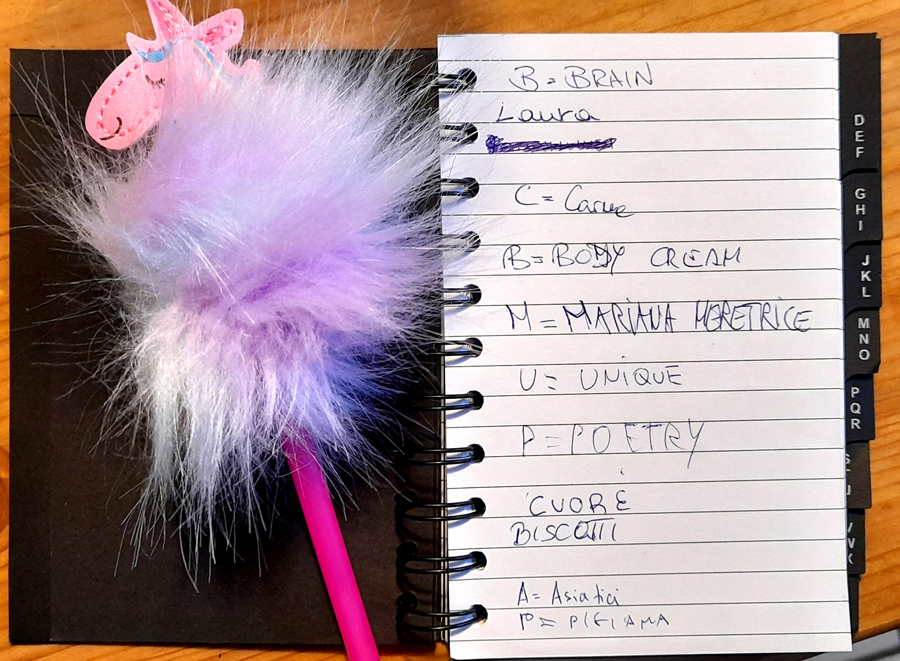 B = BRAIN
Laura
C = Carne
B = BODY CREAM
M = MARIANA MERETRICE
U = UNIQUE
P = POETRY
CUORE
BISCOTTI
A = Asiatici
P = PIGIAMA
D
E
F
G
H
I
J
K
L
M
N
O
P
Q
R
S